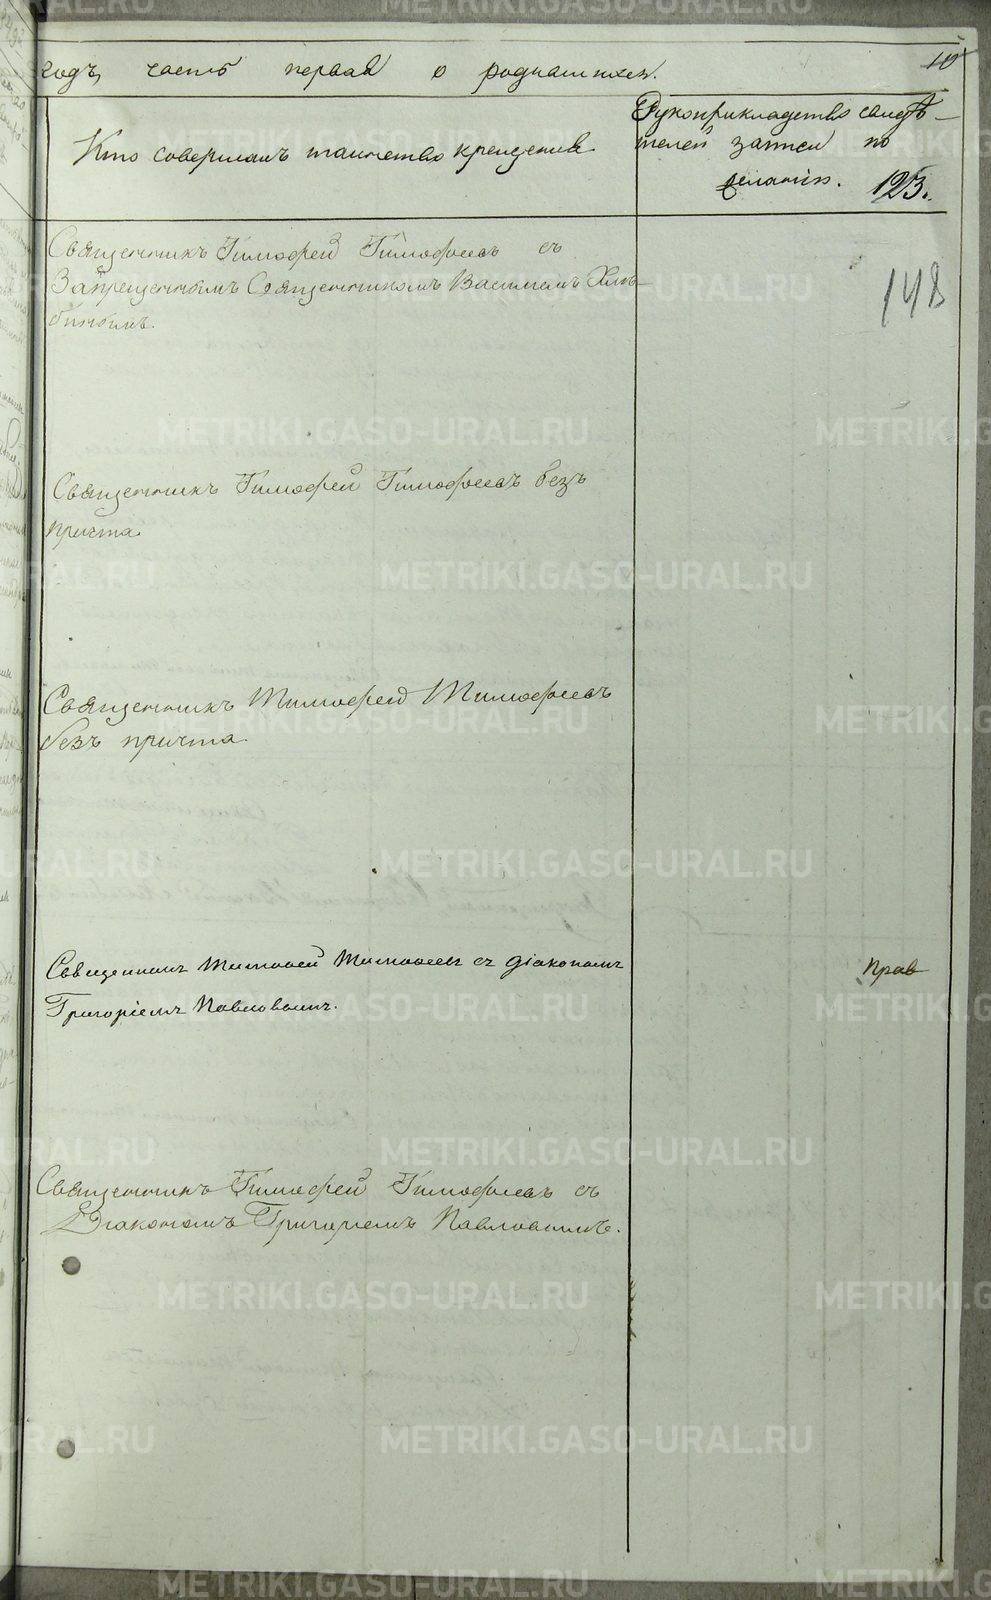 годъ, часть первая о родившихся. 10
Кто совершалъ таинство крещенія
Рукоприкладство свидѣ-
телей записи по
желанію. 123.
148
Священникъ Тимофей Тимофеевъ съ
Запрещеннымъ Священникомъ Василіемъ Хлѣ-
бинымъ.
Священникъ Тимофей Тимофеевъ безъ
причта
Священникъ Тимофей Тимофеевъ
безъ причта
Священникъ Тимофей Тимофеевъ съ діакономъ
Григоріемъ Павловымъ.
Прав
Священникъ Тимофей Тимофеевъ съ
Діакономъ Григоріемъ Павловымъ.
METRIKI.GASO-URAL.RU